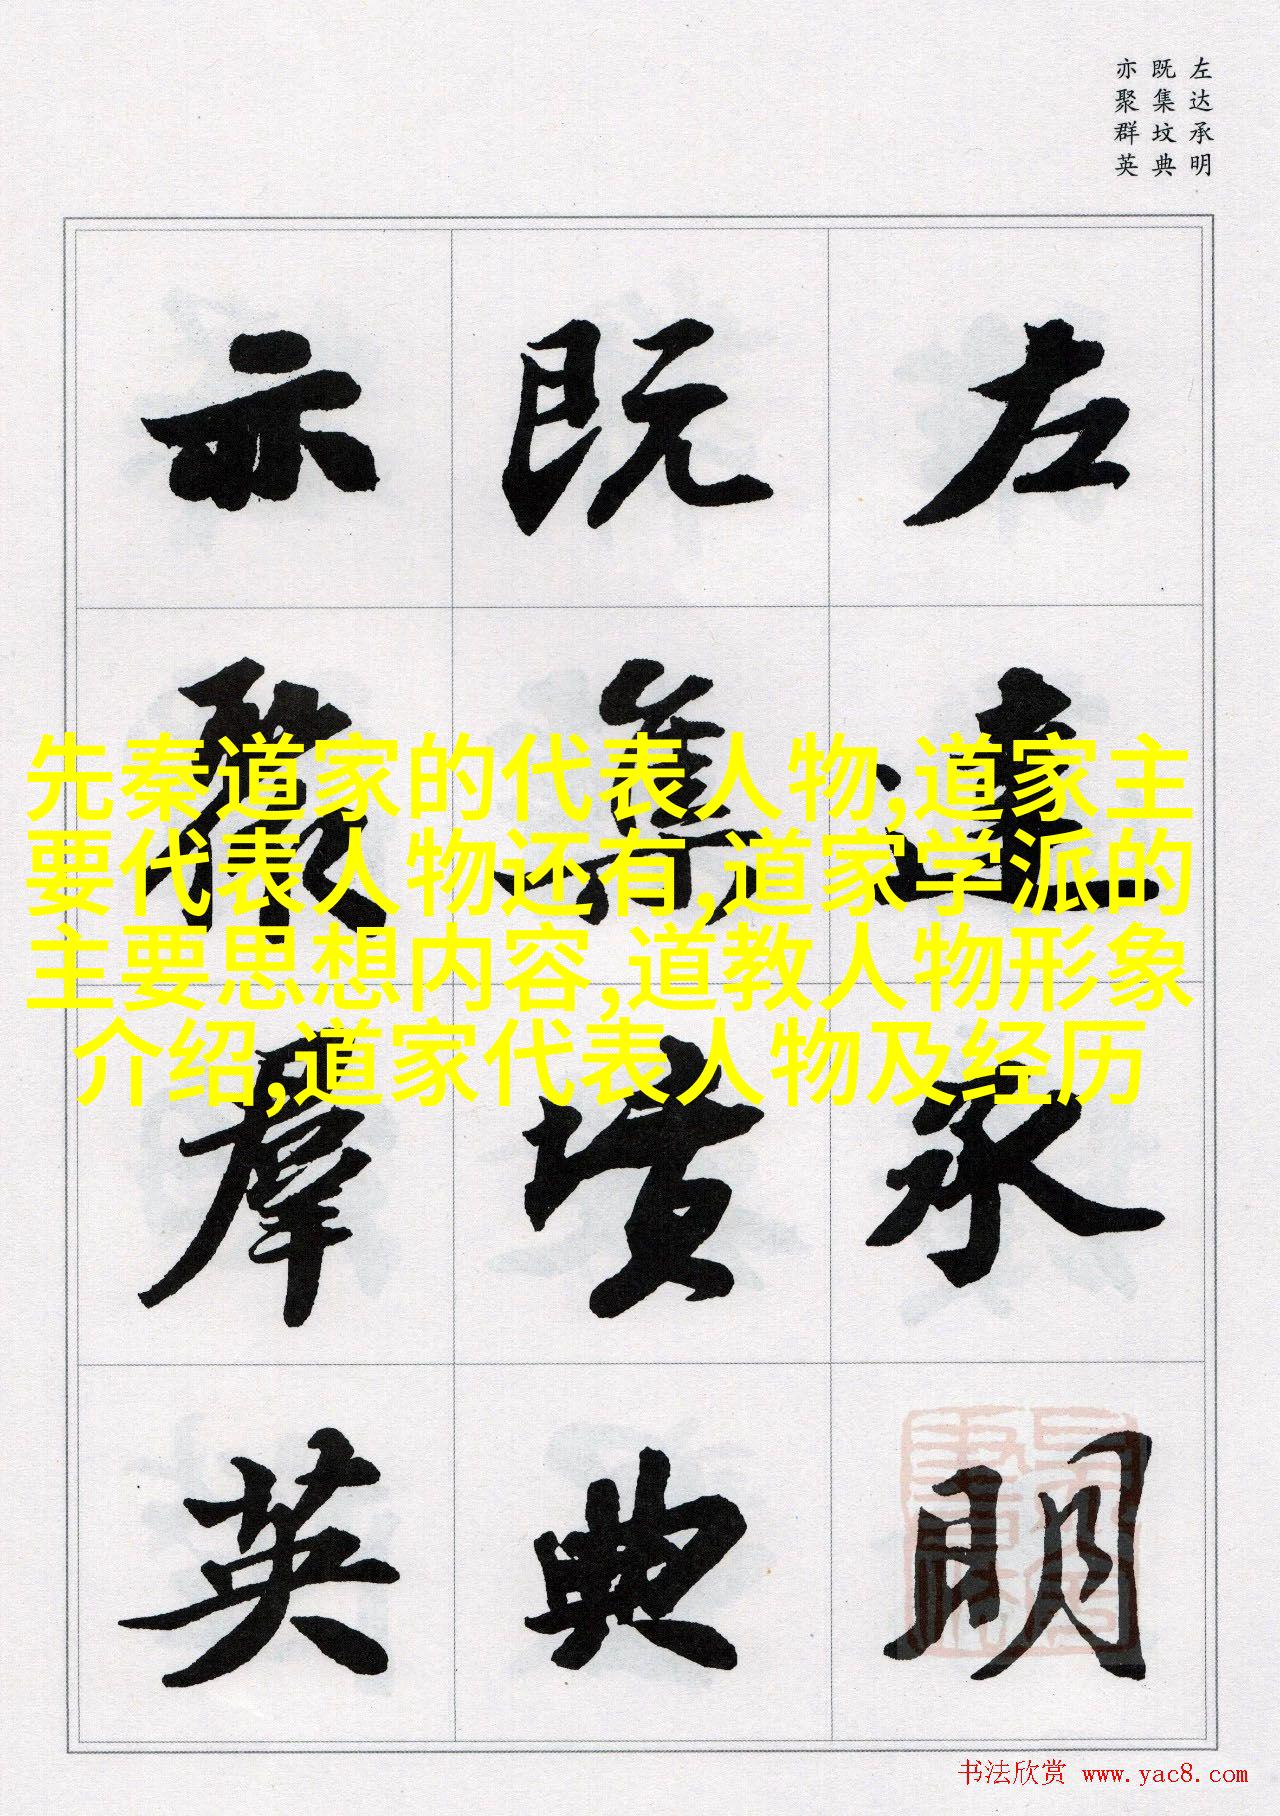 左达承明
既集坟典
亦聚群英
左達承明
既集墳典
亦聚群英
先秦道家的代表人物,道家主
要代表人物还有,道家学派的
主要思想内容,道教人物形象
介绍,道家代表人物及经历
书法欣赏 www.yac8.com